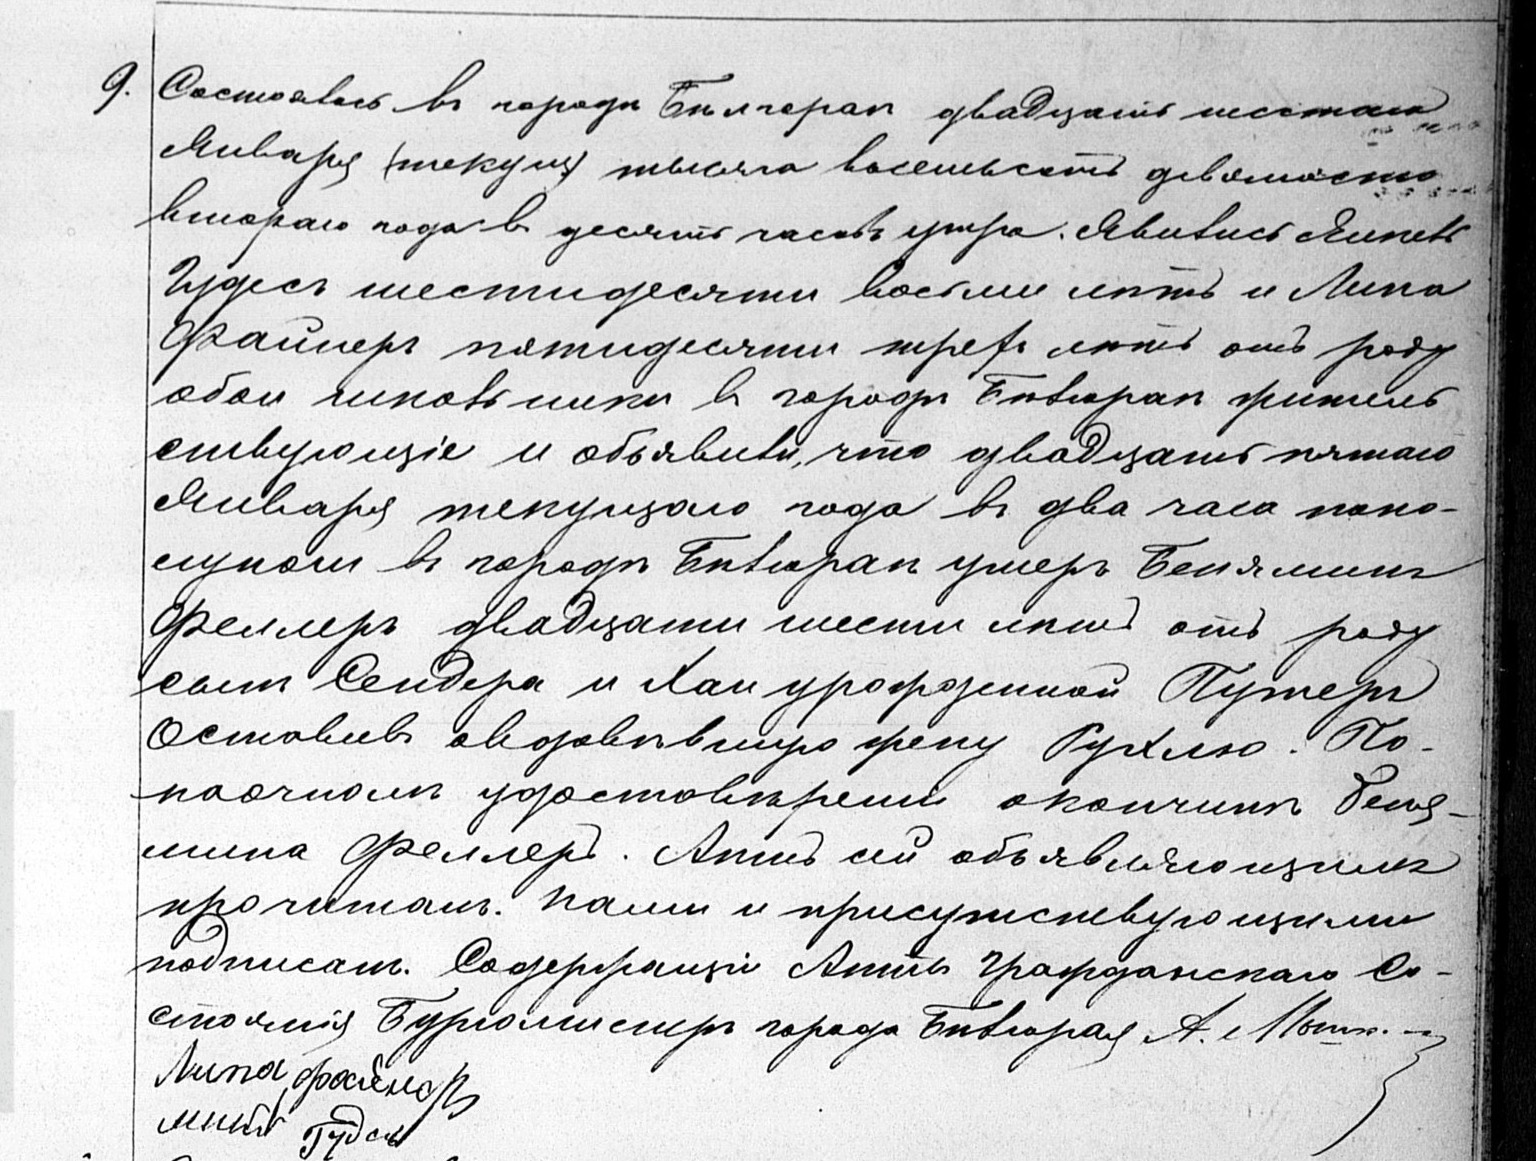 9. Состоялось въ городѣ Билгораѣ двадцать шестаго
Января (текущ) тысяча восемьсотъ девяносто
втораго года въ десять часовъ утра. Явились
Гудесъ шестидесяти восьми лѣтъ и Липа
Файнеръ пятидесяти трехъ лѣтъ отъ роду
обои чиновники въ городѣ Билгораѣ житель
ствующіе и объявили, что двадцать пятаго
Января текущаго года въ два часа попо-
лудни въ городѣ Билгораѣ умеръ Беняминъ
Феллеръ двадцати шести лѣтъ отъ роду
сынъ Сендера и Хаи урожденной Путеръ
Оставивъ овдовѣвшую жену Рухлю. По
наочномъ удостовѣреніи о кончинѣ Беня-
мина Феллеръ. Актъ сей объявляющимъ
прочитанъ. Нами и присутствующими
подписанъ. Содержащій Акты Гражданскаго Со-
стоянія Бургомистръ города Билгорая А.
Липа файнеръ
Гудесъ